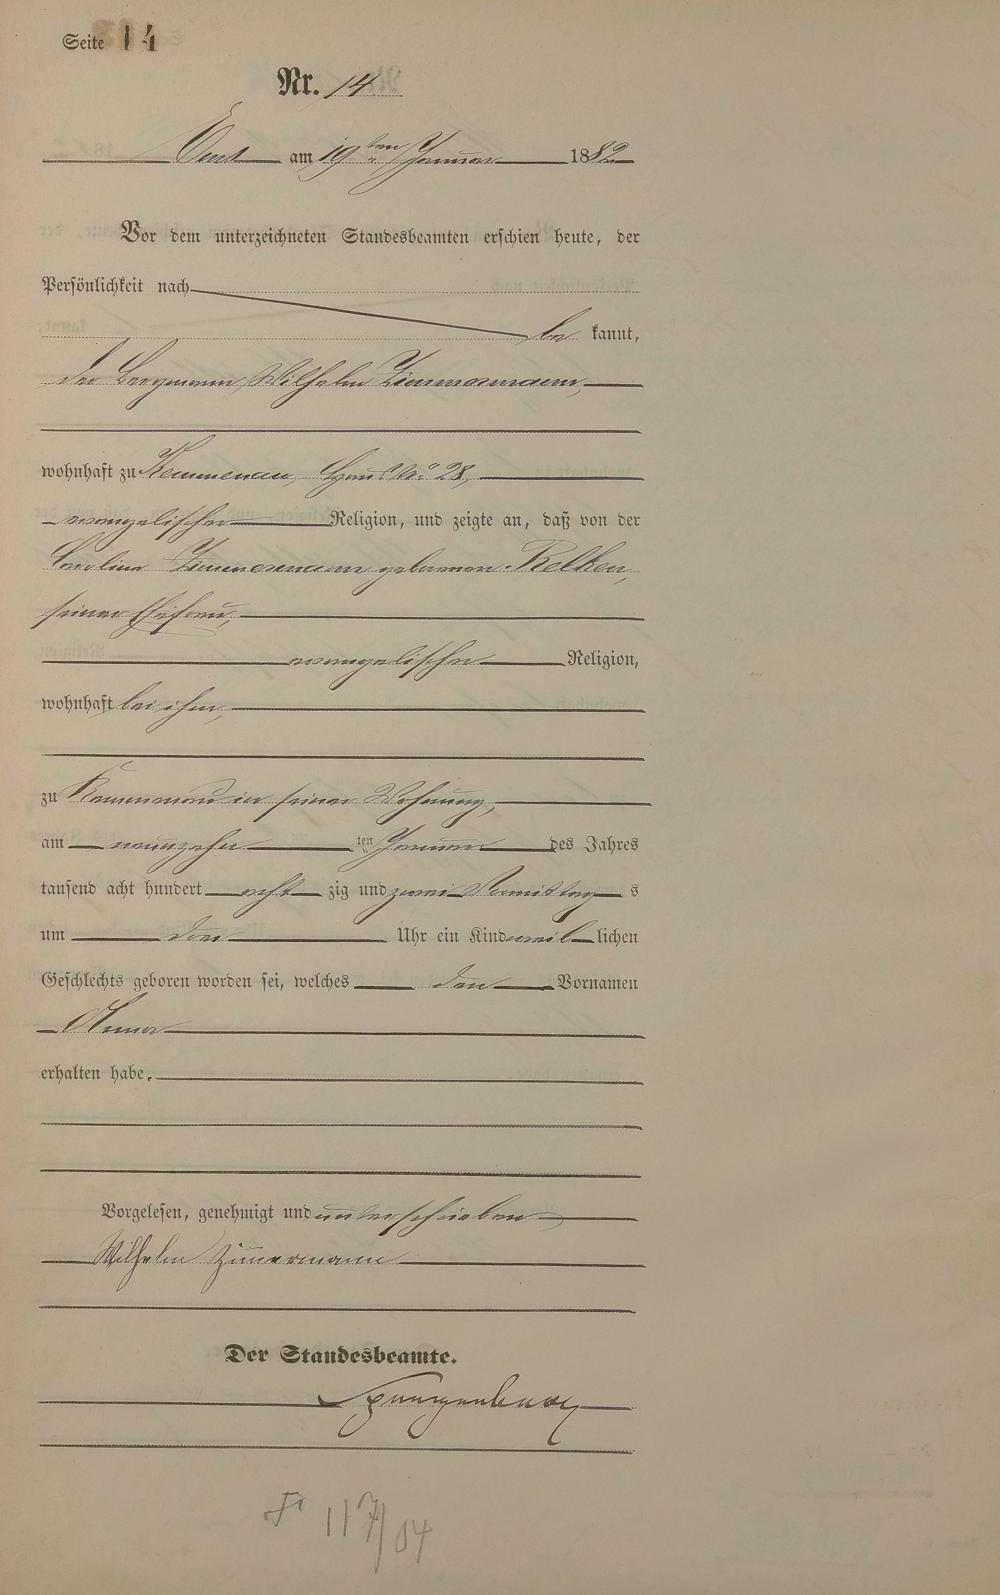 Seite 14
Nr. 14
Ems am 19ten Januar 1882
Vor dem unterzeichneten Standesbeamten erschien heute, der
Persönlichkeit nach
be kannt,
der Bergmann Wilhelm Zimmermann,
wohnhaft zu Kemmenau, Haus No 28,
evangelischer Religion, und zeigte an, daß von der
Caroline Zimmermann geborenen
seiner Ehefrau,
evangelischer Religion,
wohnhaft bei ihm,
zu Kemmenau in seiner Wohnung,
am neunzehnten Januar des Jahres
tausend acht hundert acht zig und zwei Vormittags
um drei Uhr ein Kind weiblichen
Geschlechts geboren worden sei, welches den Vornamen
Anna
erhalten habe.
Vorgelesen, genehmigt und unterschrieben
Wilhelm Zimmermann
Der Standesbeamte.
Spangenberg